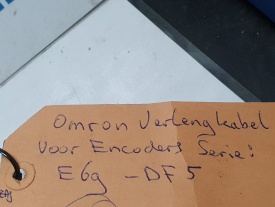 Omron Verlengkabel
voor Encoders Serie:
E6g -DF5